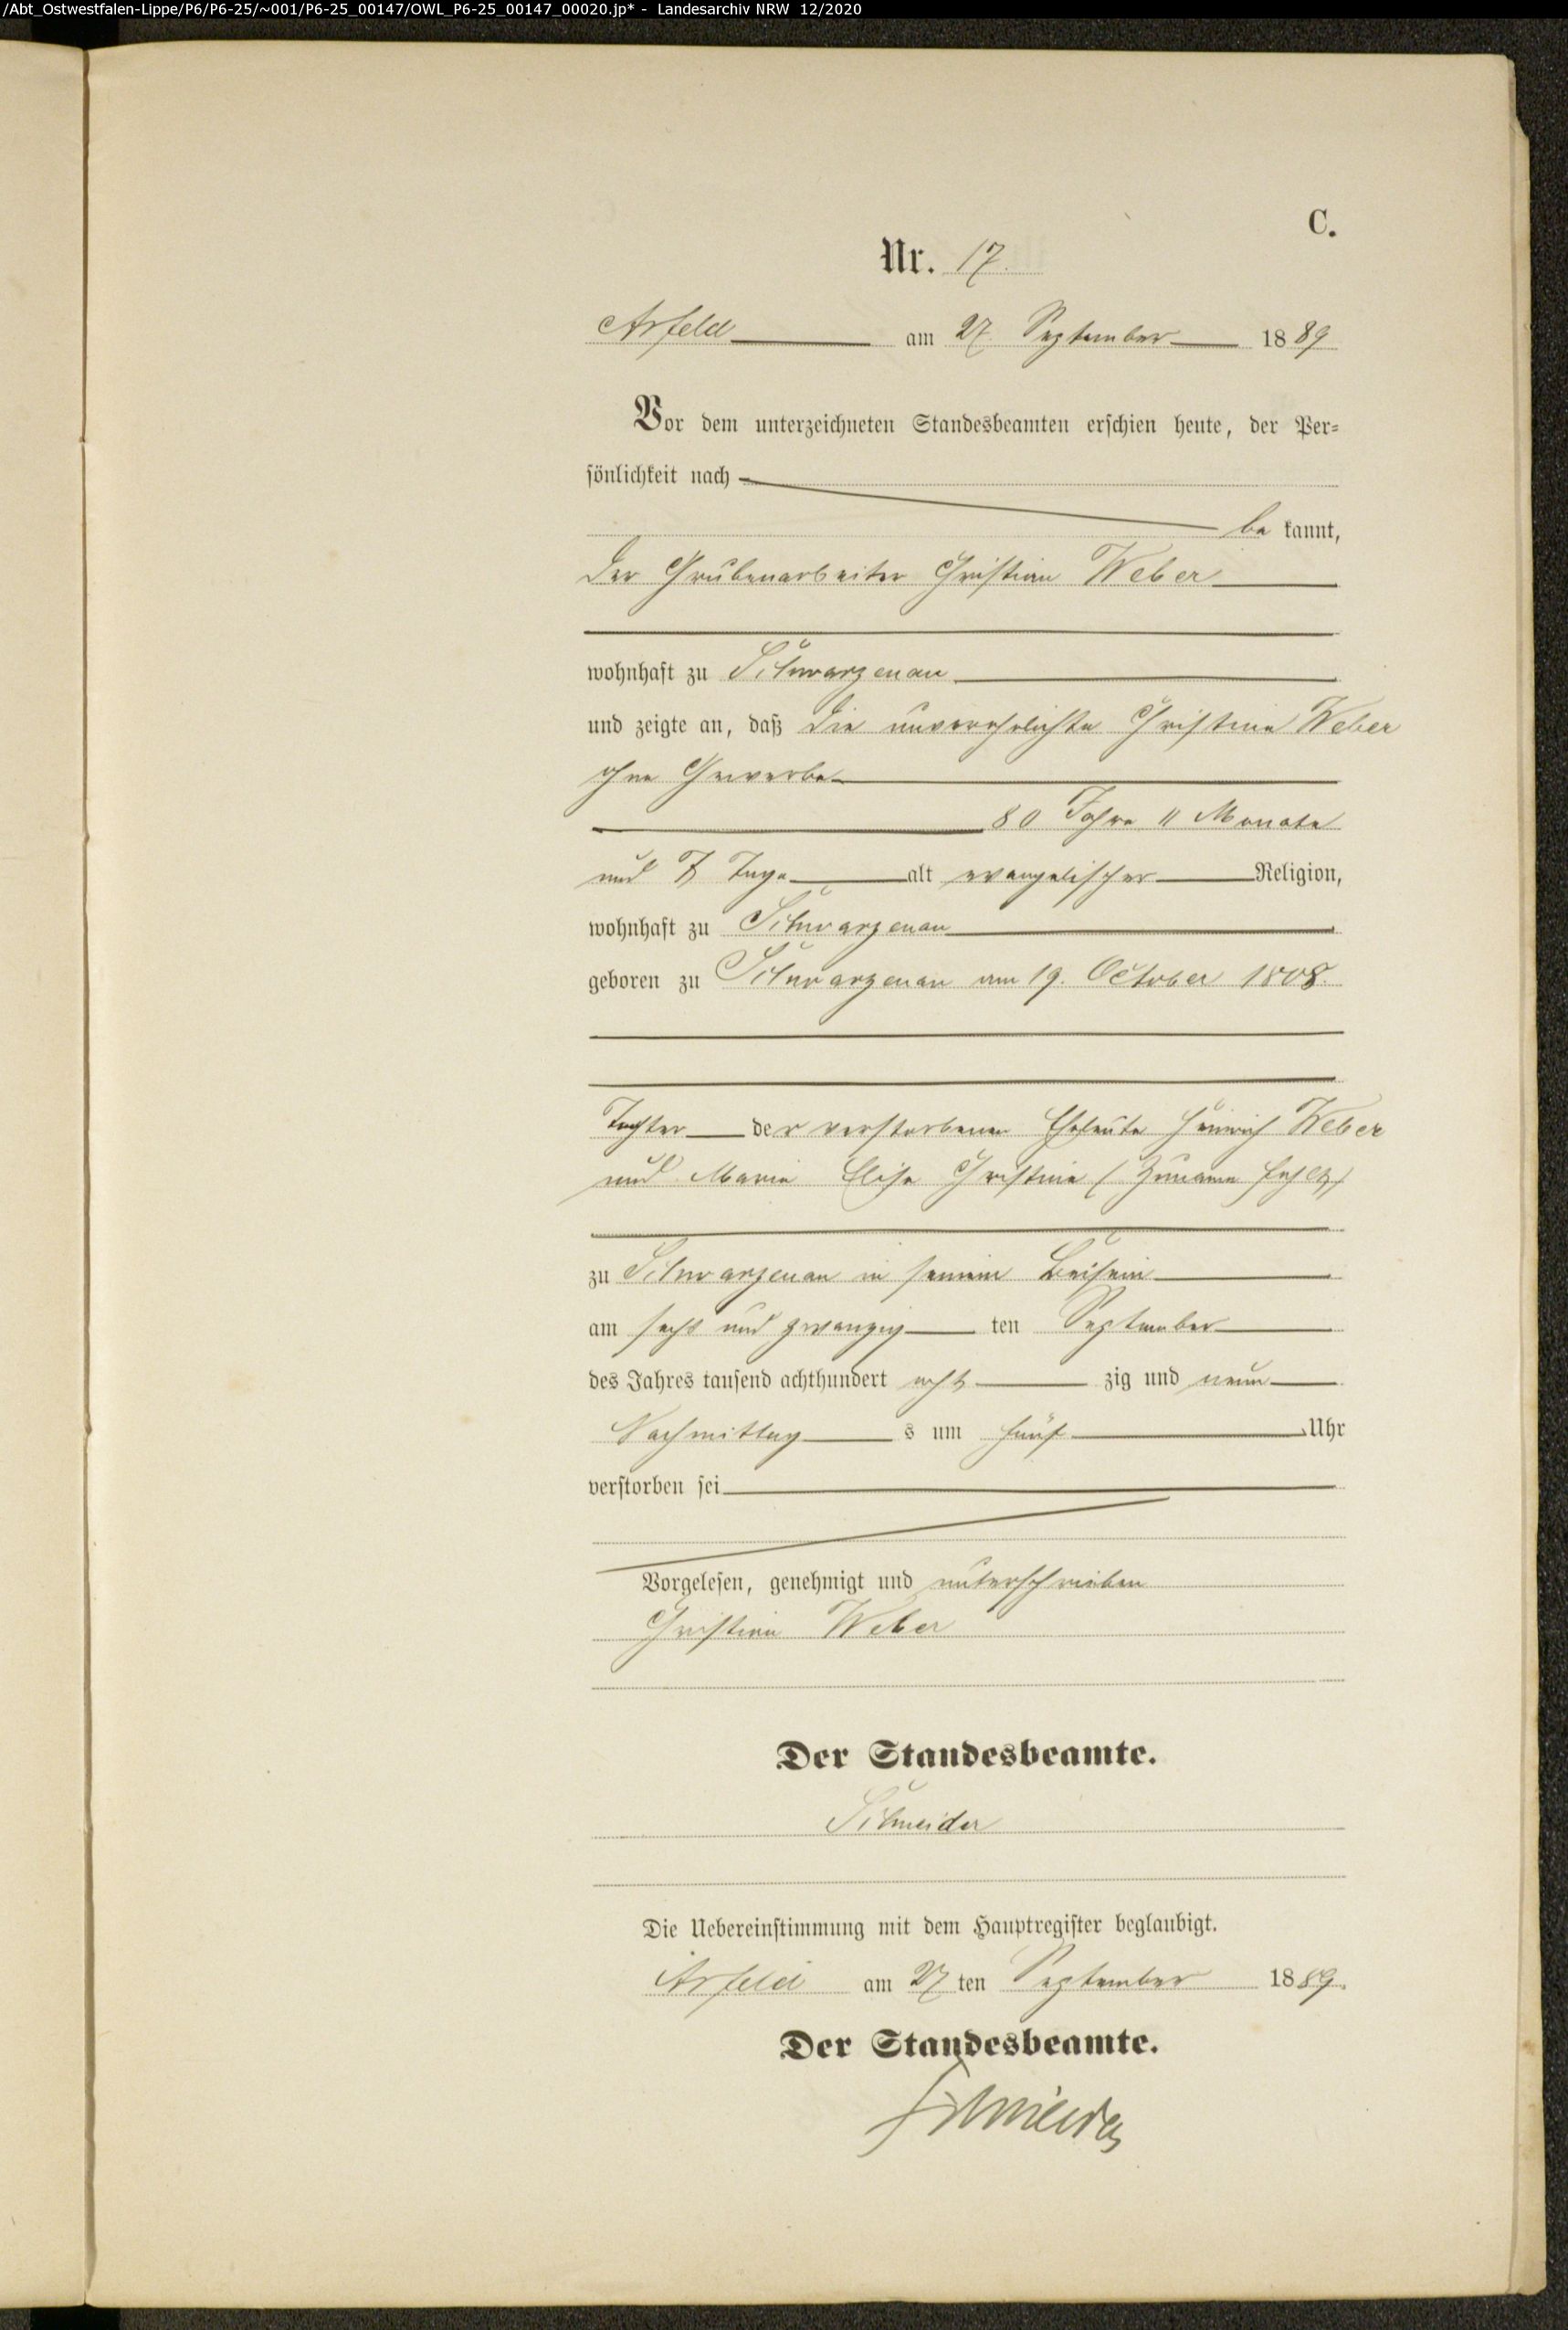 /Abt_Ostwestfalen-Lippe/P6/P6-25/~001/P6-25_00147/OWL_P6-25_00147_00020.jp* - Landesarchiv NRW 12/2020
C.
Nr. 17.
Arfeld am 27. September 1889
Vor dem unterzeichneten Standesbeamten erschien heute, der Per-
sönlichkeit nach
bekannt,
der Grubenarbeiter Christian Weber
wohnhaft zu Schwarzenau
und zeigte an, daß die unverehelichte Christine Weber
ohne Gewerbe
80 Jahre 11 Monate
und 7 Tage alt evangelischer Religion,
wohnhaft zu Schwarzenau
geboren zu Schwarzenau am 19. October 1808.
Tochter der verstorbenen Eheleute Heinrich Weber
und Marie Elise Christine (Zuname fehlt)
zu Schwarzenau in seinem Beisein
am sechs und zwanzigten September
des Jahres tausend achthundert achtzig und neun
Nachmittags um fünf Uhr
verstorben sei
Vorgelesen, genehmigt und unterschrieben
Christian Weber
Der Standesbeamte.
Schneider
Die Uebereinstimmung mit dem Hauptregister beglaubigt.
Arfeld am 27ten September 1889.
Der Standesbeamte.
Schneider